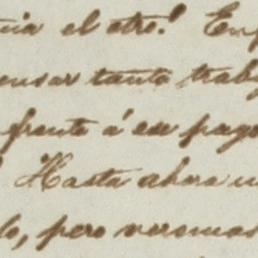 el otro! En
pensar tanto trab
frente á ese pag
Hasta ahora
lo, pero veremos